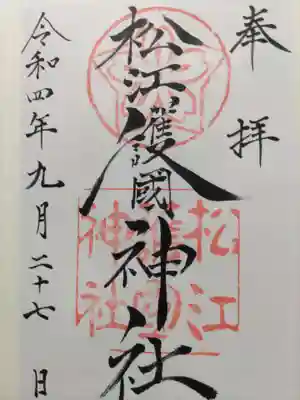 奉拝
松江護國神社
松江護國神社
令和四年九月二十七日